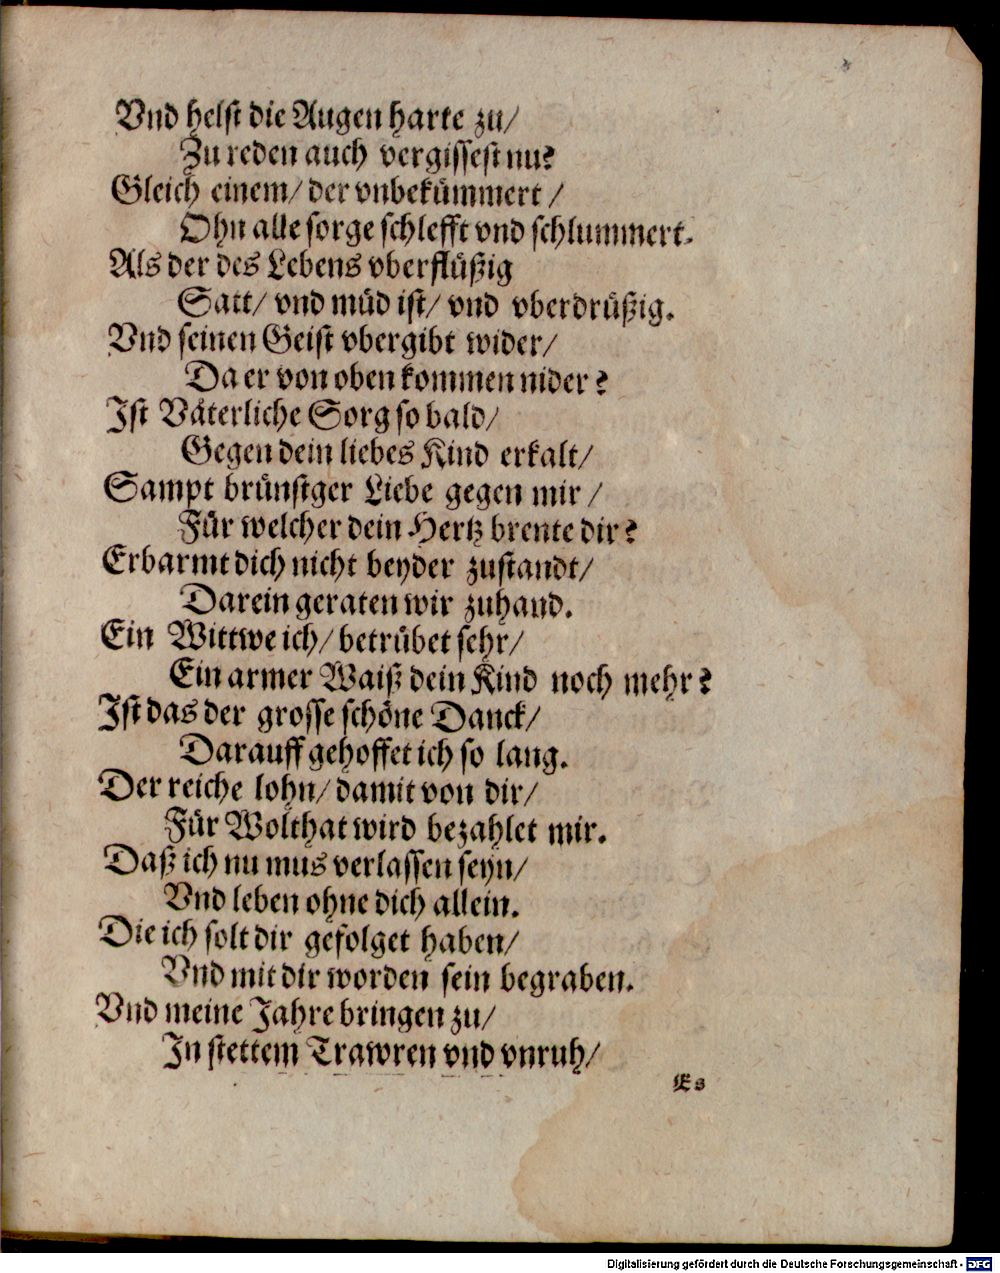 Vnd helst die Augen harte zu/
Zu reden auch vergissest nu?
Gleich einem/ der vnbekümmert/
Ohn alle sorge schlefft vnd schlummert.
Als der des Lebens vberflüßig
Satt/ vnd müd ist/ vnd vberdrüßig.
Vnd seinen Geist vbergibt wider/
Da er von oben kommen nider?
Ist Väterliche Sorg so bald/
Gegen dein liebes Kind erkalt/
Sampt brünstger Liebe gegen mir/
Für welcher dein Hertz brente dir?
Erbarmt dich nicht beyder zustandt/
Darein geraten wir zuhand.
Ein Wittwe ich/ betrübet sehr/
Ein armer Waiß dein Kind noch mehr?
Ist das der grosse schöne Danck/
Darauff gehoffet ich so lang.
Der reiche lohn/ damit von dir/
Für Wolthat wird bezahlet mir.
Daß ich nu mus verlassen seyn/
Vnd leben ohne dich allein.
Die ich solt dir gefolget haben/
Vnd mit dir worden sein begraben.
Vnd meine Jahre bringen zu/
In stettem Trawren vnd vnruh/
Es
Digitalisierung gefördert durch die Deutsche Forschungsgemeinschaft - DFG